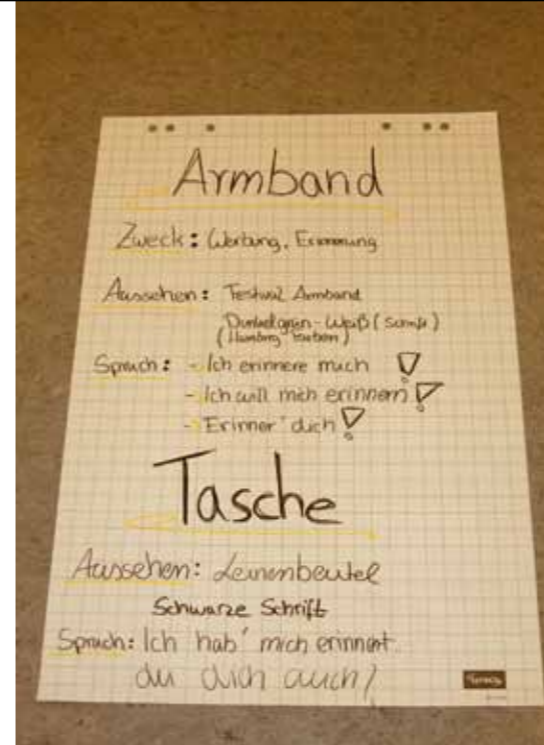 Armband
Zweck: Werbung, Erinnerung
Aussehen: Festival Armband
Dunkelgrün-Weiß (Schrift)
(Hamburg
Spruch: - Ich erinnere mich !
- Ich will mich erinnern !
- Erinner' dich !
Tasche
Aussehen: Leinenbeutel
Schwarze Schrift
Spruch: Ich hab' mich erinnert
du dich auch?